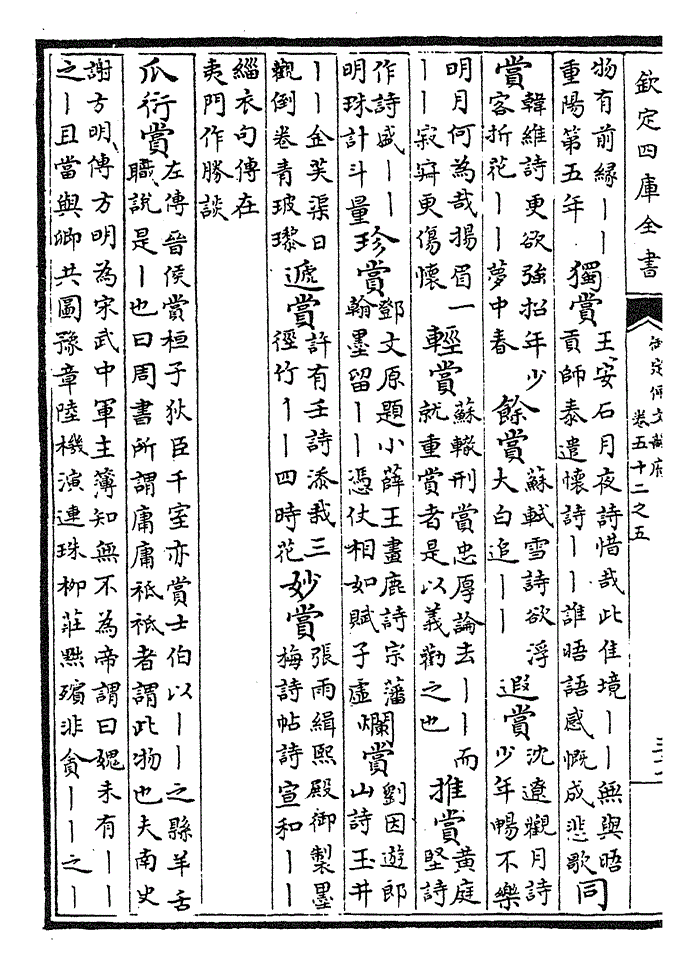 欽定四庫全書
御定佩文韻府
卷五十二之五
物有前縁丨丨
重陽第五年
獨賞
王安石月夜詩惜哉此佳境丨丨無與晤
貢師泰遣懷詩丨丨誰晤語感慨成悲歌
同
賞
韓維詩更欲強招年少
客折花丨丨夢中春
餘賞
蘇軾雪詩欲浮
大白追丨丨
遐賞
沈遼觀月詩
少年暢不樂
明月何為哉揚眉一
丨丨寂寞更傷懷
輕賞
蘇轍刑賞忠厚論去丨丨而
就重賞者是以義勸之也
推賞
黃庭
堅詩
作詩盛丨丨
明珠計斗量
珍賞
鄧文原題小薛王畫鹿詩宗藩
翰墨留丨丨憑仗相如賦子虛
爛賞
劉因遊郎
山詩玉井
丨丨金芙渠日
觀倒卷青玻瓈
遞賞
許有壬詩添栽三
徑竹丨丨四時花
妙賞
張雨緝熙殿御製墨
梅詩帖詩宣和丨丨
緇衣句傳在
夷門作勝談
瓜衍賞
左傳晉侯賞桓子狄臣千室亦賞士伯以丨丨之縣羊舌
職說是丨也曰周書所謂庸庸祗祗者謂此物也夫南史
謝方明傳方明為宋武中軍主簿知無不為帝謂曰媿未有丨丨
之丨且當與卿共圖豫章陸機演連珠柳莊黜殯非貪丨丨之丨